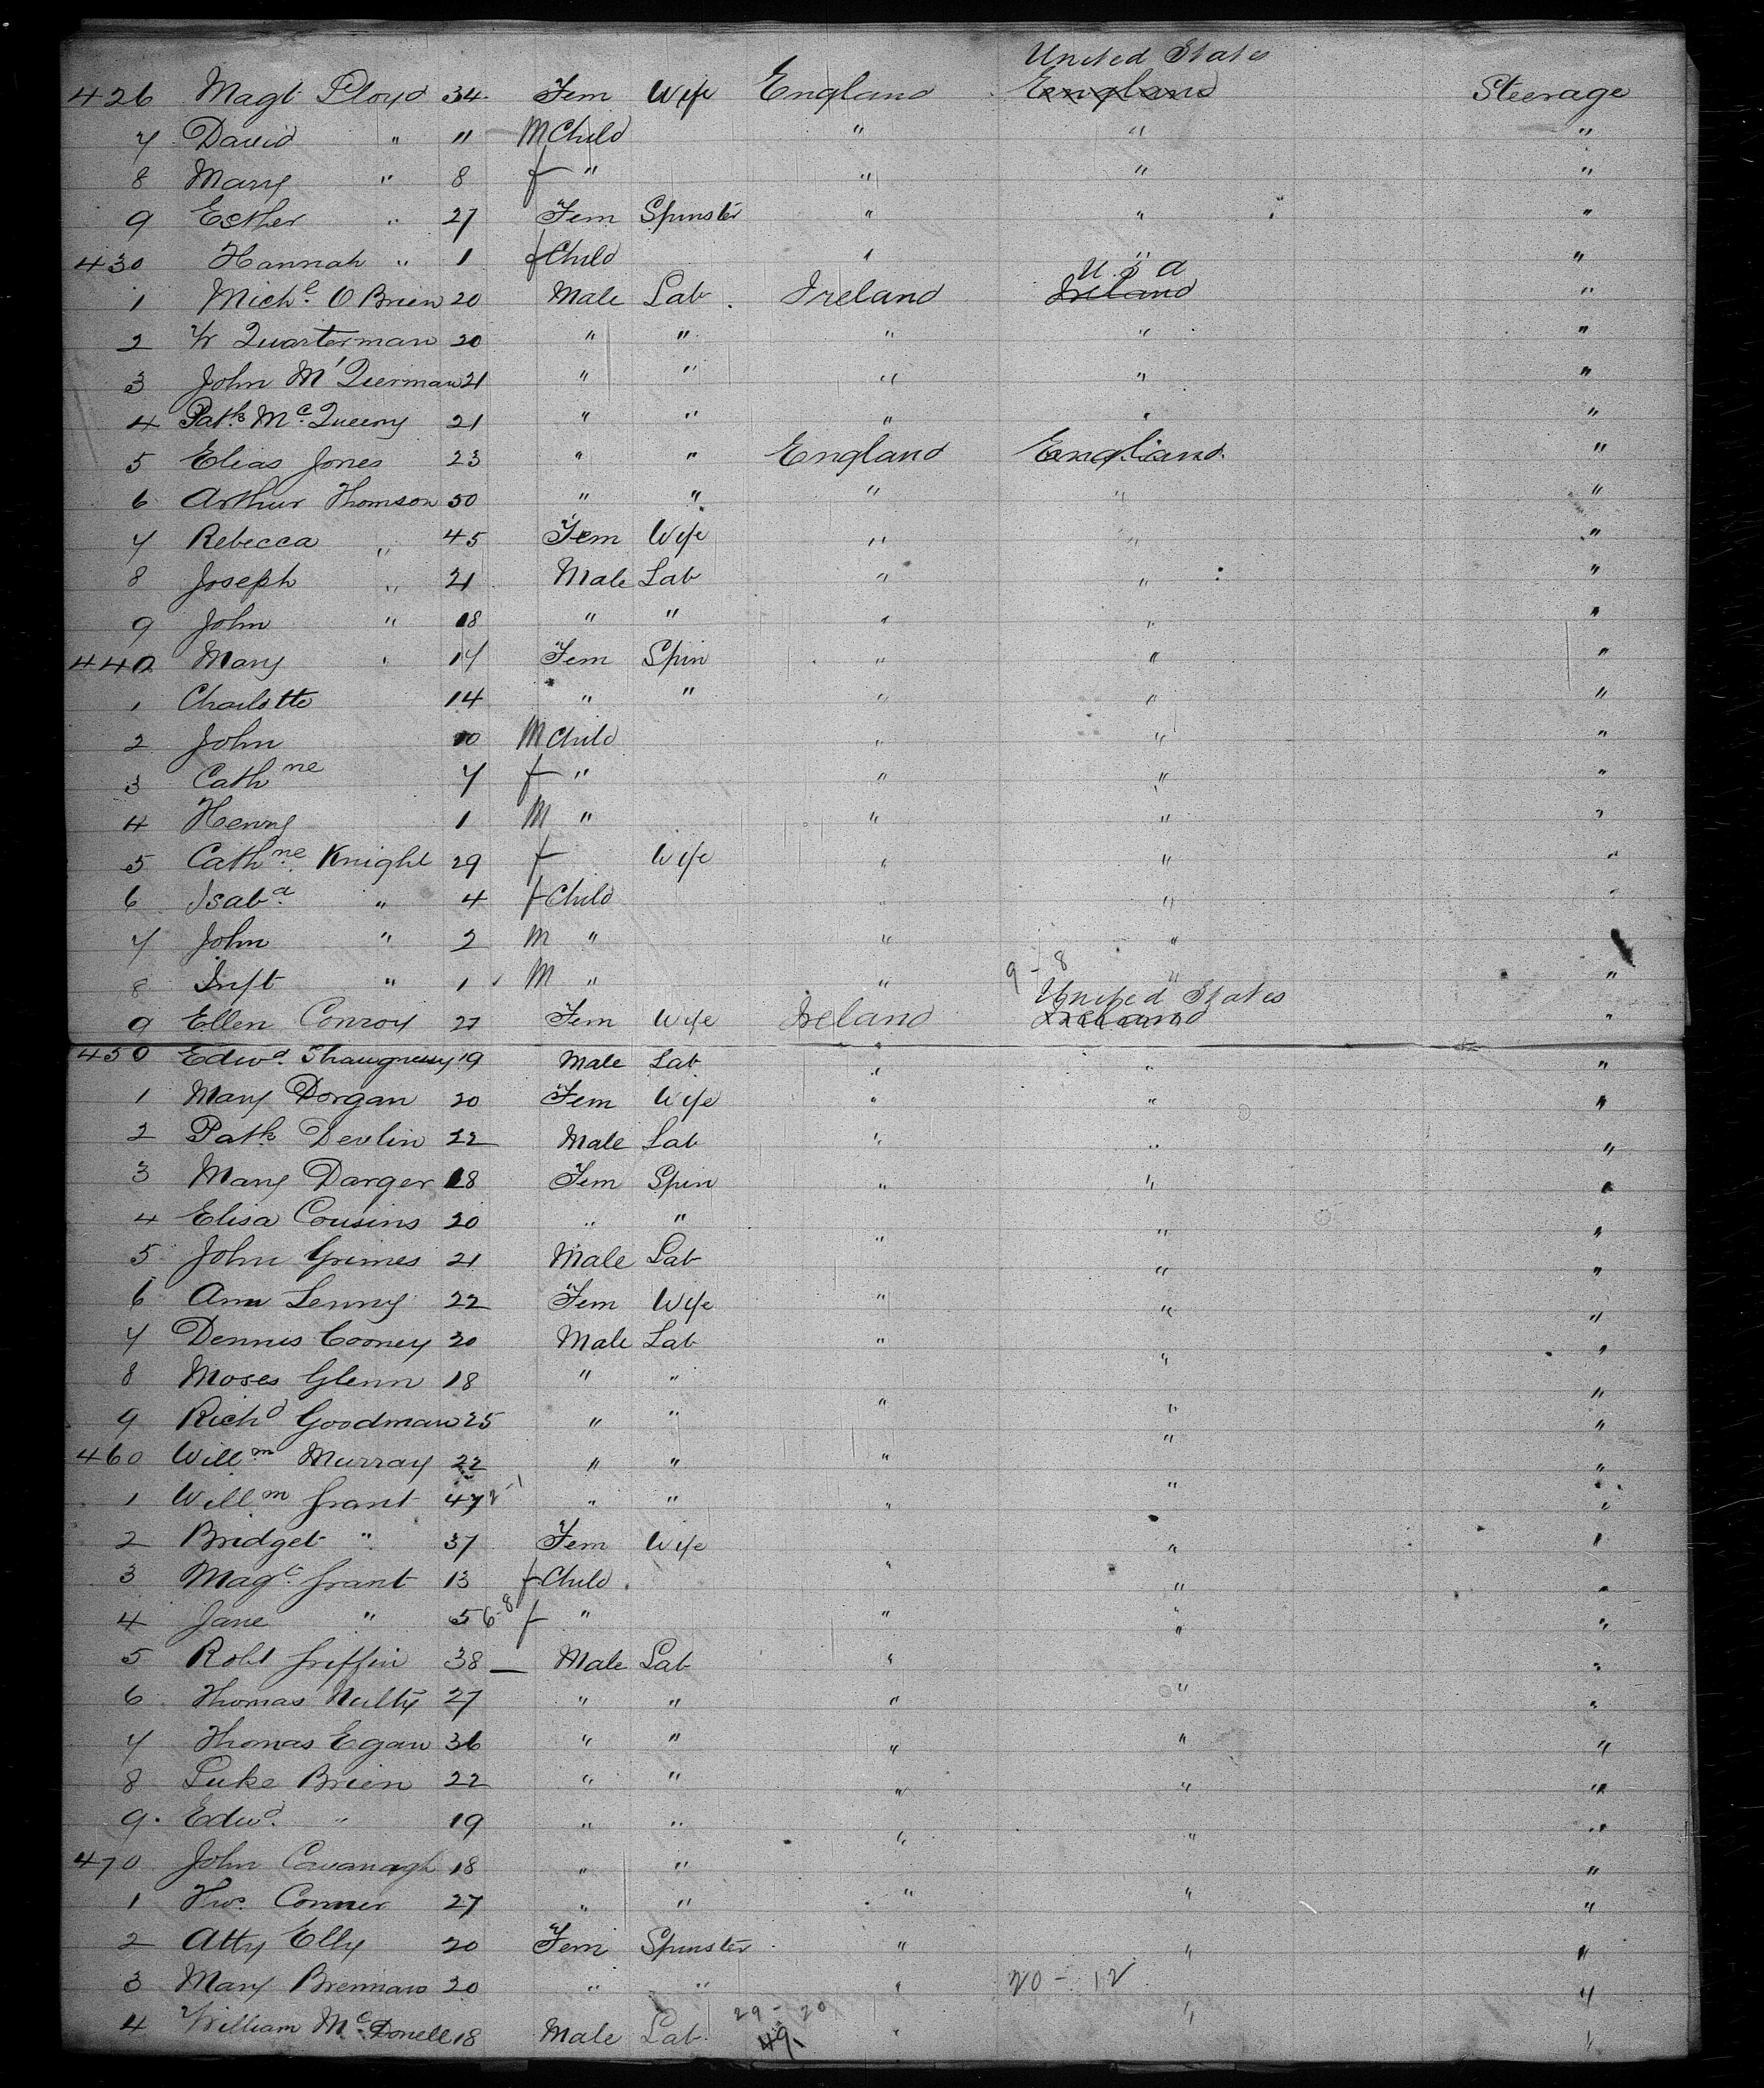 United States
426 Magt Lloyd 34 Fem Wife England England Steerage
7 David " 11 M Child " " "
8 Mary " 8 f " " " "
9 Esther " 27 Fem Spinster " " "
430 Hannah " 1 f Child " " "
U S A
1 Michl. O Brien 20 Male Lab. Ireland Ireland "
2 W Quarterman 20 " " " " "
3 John M' Querman 21 " " " " "
4 Patk Mc Queeny 21 " " " " "
5 Elias Jones 23 " " England England "
6 Arthur Thomson 50 " " " " "
7 Rebecca " 45 Fem Wife " " "
8 Joseph " 21 Male Lab " " "
9 John " 18 " " " " "
440 Mary " 17 Fem Spin " " "
1 Charlotte 14 " " " " "
2 John 10 M Child " " "
3 Cathne 7 f " " " "
4 Henry 1 M " " " "
5 Cathne Knight 29 f Wife " " "
6 Isaba " 4 f Child " " "
7 John " 2 M " " "
9 - 8
8 Inft " 1 M " " " "
United States
9 Ellen Conroy 27 Fem Wife Ireland Ireland "
450 Edwd Shaugnessy 19 Male Lab " " "
1 Mary Dorgan 20 Fem Wife " " "
2 Patk Devlin 22 Male Lab " " "
3 Mary Darger 18 Fem Spin " " "
4 Elisa Cousins 20 " " " " "
5 John Grimes 21 Male Lab " "
6 Ann Lenny 22 Fem Wife " " "
7 Dennis Cooney 20 Male Lab " " "
8 Moses Glenn 18 " " " " "
9 Richd Goodman 25 " " " "
460 Willm Murray 22 " " " " "
1 Willm Grant 47 " " " "
2 Bridget " 37 Fem Wife " "
3 Magt Grant 13 f Child " " "
4 Jane " 5 6-8 f " " " "
5 Robt Griffin 38 Male Lab " "
6 Thomas Nulty 27 " " " " "
7 Thomas Egan 36 " " " " "
8 Luke Brien 22 " " " " "
9 Edwd. " 19 " " " " "
470 John Cavanagh 18 " " "
1 Thos Conner 27 " " " " "
2 Atty Elly 20 Fem Spinster " " "
3 Mary Brennan 20 " " " 20 - 12 "
29 - 20
4 William Mc Donell 18 Male Lab. 49 " " "